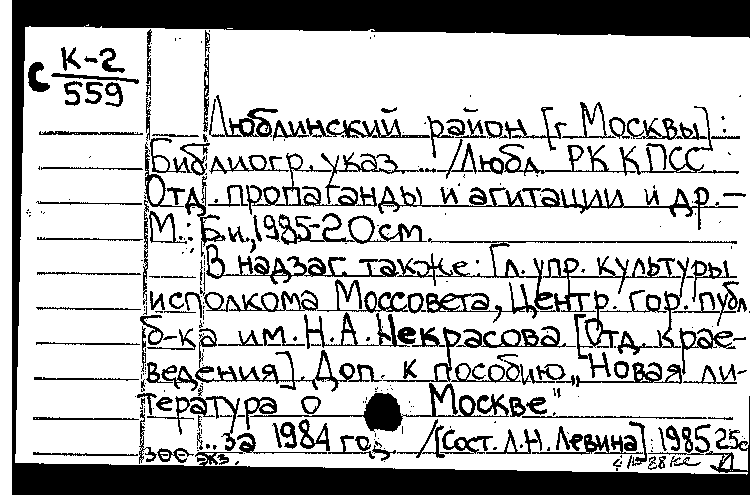 с К-2
559
Люблинский район [г Москвы]:
Библиогр. указ ... / Любл. РК КПСС
Отд. пропаганды и агитации и др. –
М.: Б.и., 1985-20 см.
В надзаг. также: Гл. упр. культуры
исполкома Моссовета, Центр. гор. публ
б-ка им. Н.А. Некрасова. [Отд. крае-
ведения]. Доп. к пособию „Новая ли-
тература о Москве."
...за 1984 год. /[Сост. Л.Н. Левина] 1985 25с
300 экз.